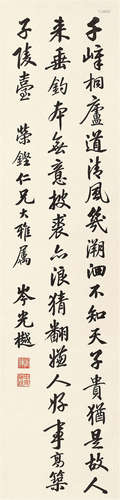 千峰桐廬道清風幾溯洄不知天子貴猶是故人
来垂釣本無意披裘亦浪猜翻嫌人好事高築
子陵臺 榮鏗仁兄大雅属 岑光樾